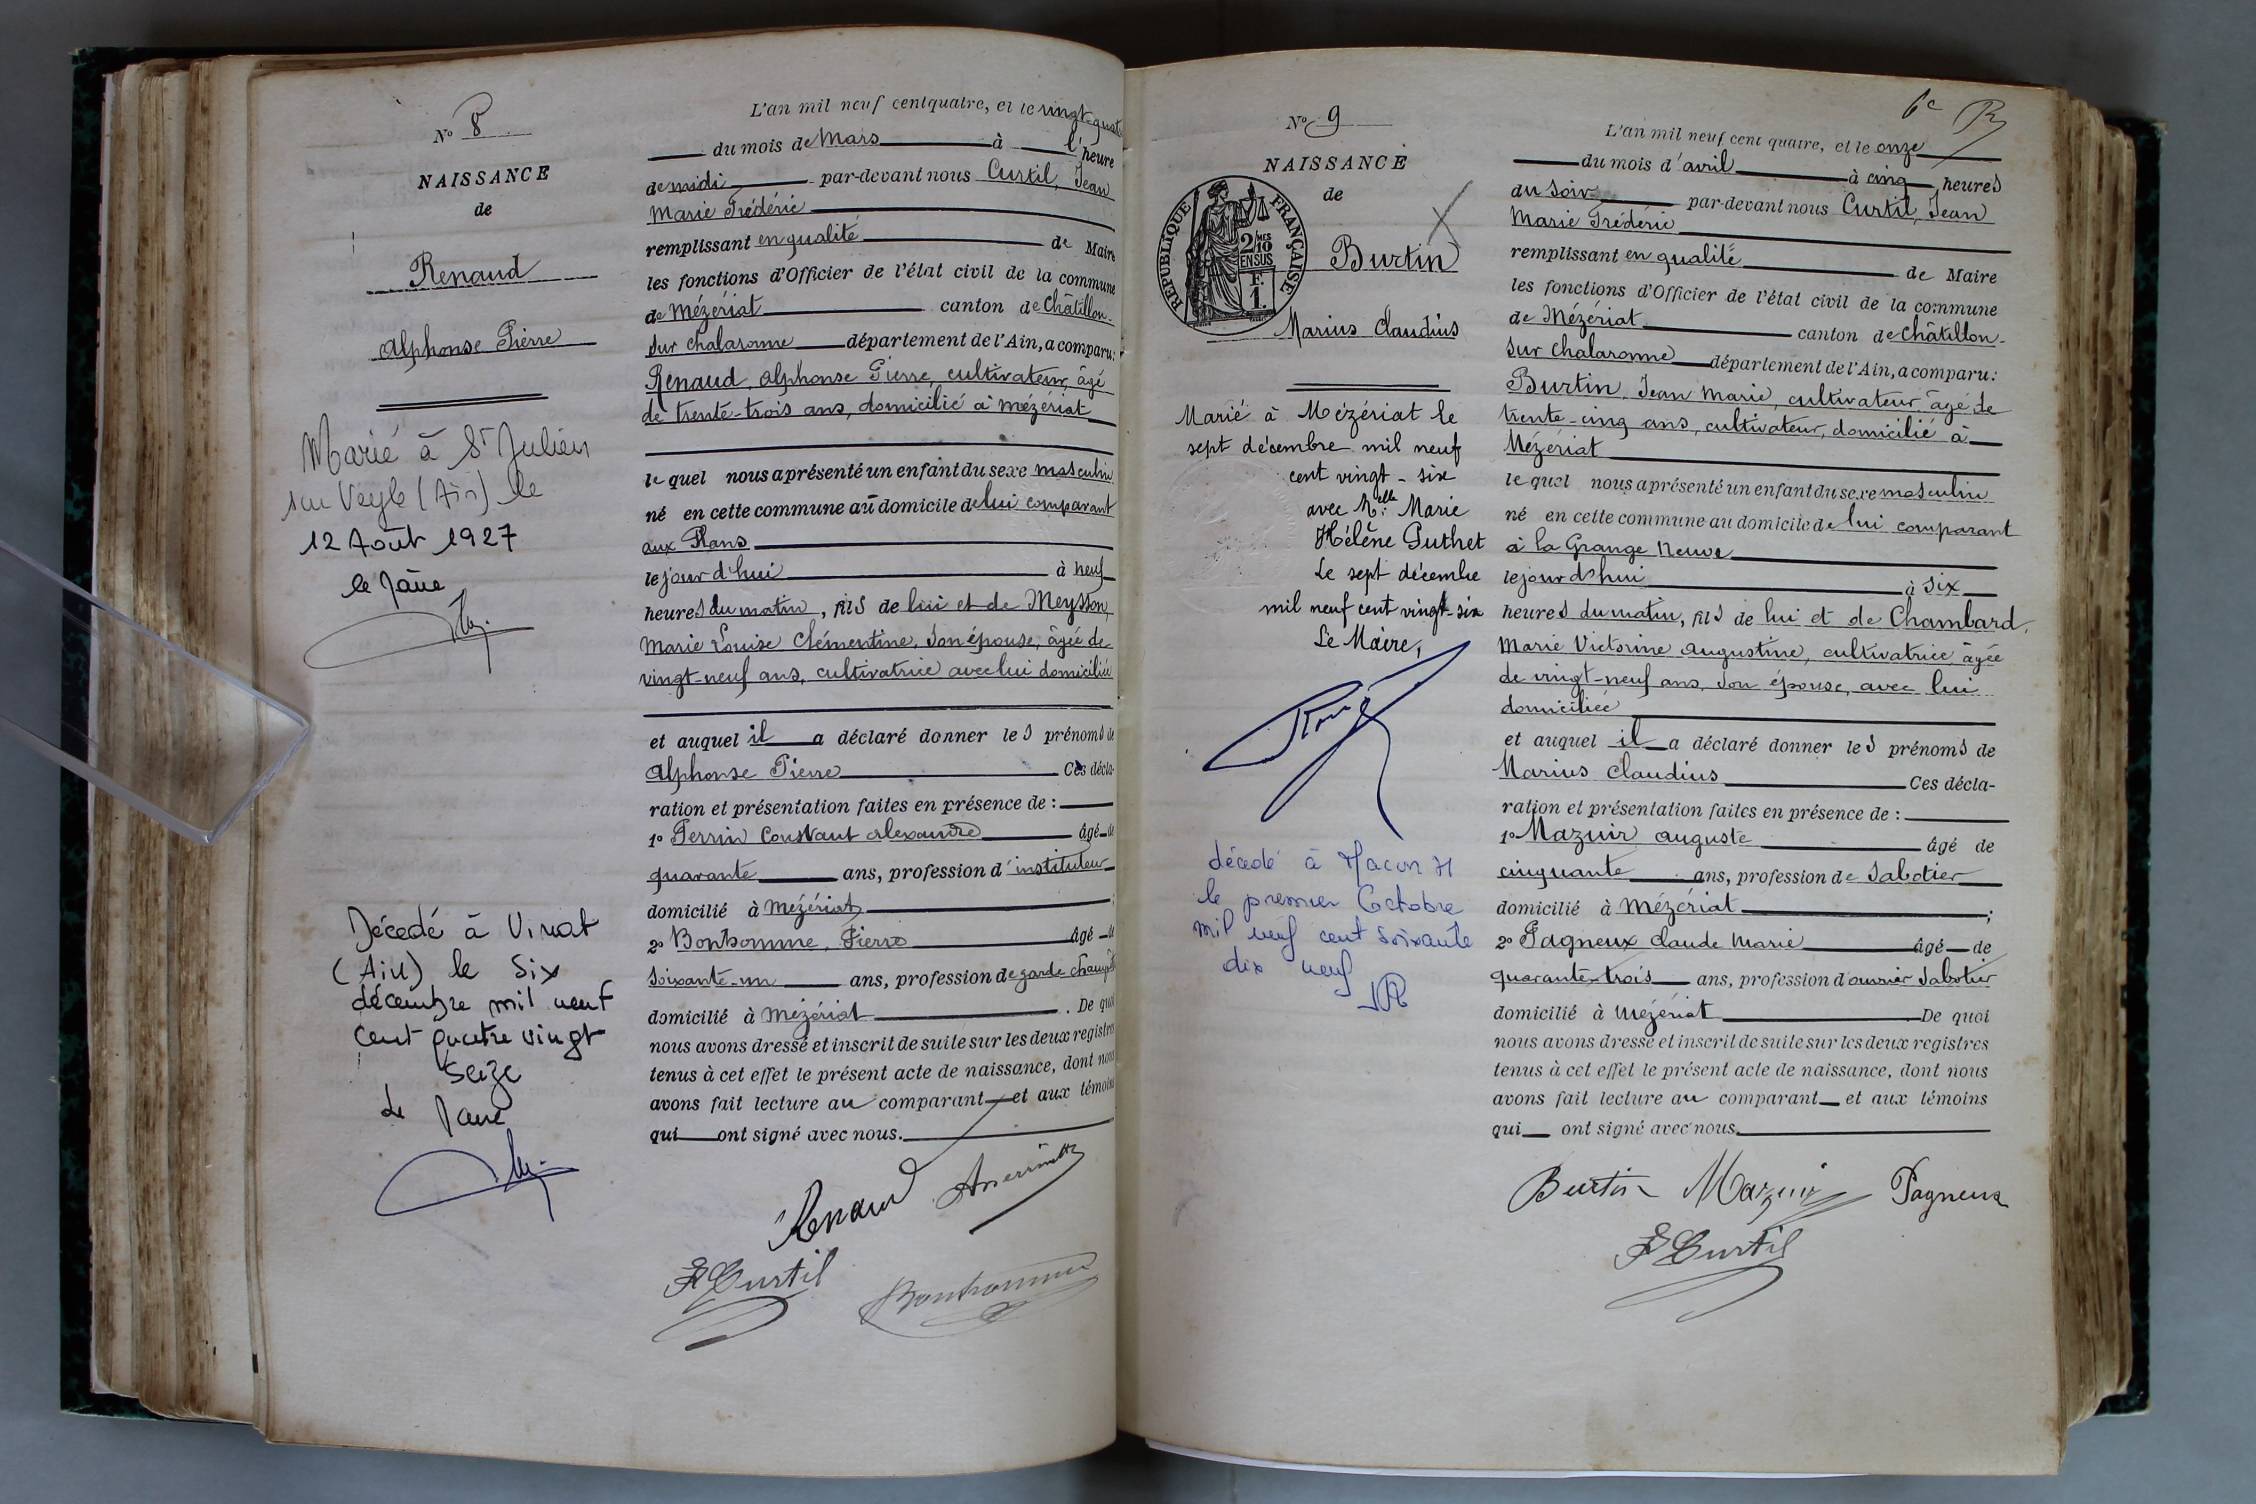 N° 8
NAISSANCE
de
Renaud
Alphonse Pierre
Marié à St Julien
sur Veyle (Ain) le
12 Août 1927
le Maire
Décédé à Viriat
(Ain) le six
décembre mil neuf
cent quatre vingt
seize
Le Maire
L'an mil neuf cent quatre, et le vingt-quatre
du mois de Mars à l' heure
de midi par-devant nous Curtil, Jean
Marie Frédéric
remplissant en qualité de Maire
les fonctions d'Officier de l'état civil de la commune
de Mézériat canton de Châtillon-
sur Chalaronne département de l'Ain, a comparu:
Renaud, Alphonse Pierre, cultivateur, âgé
de trente-trois ans, domicilié à Mézériat
lequel nous a présenté un enfant du sexe masculin
né en cette commune au domicile de lui comparant
aux Plans
le jour d'hui à neuf
heures du matin, fils de lui et de Meysson,
Marie Louise Clémentine, son épouse, âgée de
vingt-neuf ans, cultivatrice avec lui domiciliée
et auquel il a déclaré donner les prénoms de
Alphonse Pierre Ces décla-
ration et présentation faites en présence de :
1° Perrin Constant Alexandre âgé de
quarante ans, profession d'instituteur
domicilié à Mézériat ;
2° Bonhomme, Pierre âgé de
soixante-un ans, profession de garde champêtre
domicilié à Mézériat . De quoi
nous avons dressé et inscrit de suite sur les deux registres
tenus à cet effet le présent acte de naissance, dont nous
avons fait lecture au comparant et aux témoins
qui ont signé avec nous.
Renaud
F Curtil Bonhomme
6e
N° 9
NAISSANCE
de
RÉPUBLIQUE FRANÇAISE
2/10 MES
EN SUS
F.
1.
Burtin
Marius Claudius
Marié à Mézériat le
sept décembre mil neuf
cent vingt-six
avec Melle Marie
Hélène Guthet
Le sept décembre
mil neuf cent vingt-six
Le Maire,
décédé à Macon 71
le premier Octobre
mil neuf cent soixante
dix neuf
L'an mil neuf cent quatre, et le onze
du mois d'avril à cinq heures
du soir par-devant nous Curtil, Jean
Marie Frédéric
remplissant en qualité de Maire
les fonctions d'Officier de l'état civil de la commune
de Mézériat canton de Châtillon-
sur Chalaronne département de l'Ain, a comparu:
Burtin, Jean Marie, cultivateur, âgé de
trente-cinq ans, cultivateur, domicilié à
Mézériat
lequel nous a présenté un enfant du sexe masculin
né en cette commune au domicile de lui comparant
à la Grange Neuve
le jour d'hui à six
heures du matin, fils de lui et de Chambard,
Marie Victorine Augustine, cultivatrice âgée
de vingt-neuf ans, son épouse, avec lui
domiciliée
et auquel il a déclaré donner les prénoms de
Marius Claudius Ces décla-
ration et présentation faites en présence de :
1° Mazuir Auguste âgé de
cinquante ans, profession de sabotier
domicilié à Mézériat ;
2° Pagneux Claude Marie âgé de
quarante-trois ans, profession d'ouvrier sabotier
domicilié à Mézériat De quoi
nous avons dressé et inscrit de suite sur les deux registres
tenus à cet effet le présent acte de naissance, dont nous
avons fait lecture au comparant et aux témoins
qui ont signé avec nous.
Burtin Mazuir Pagneux
F Curtil